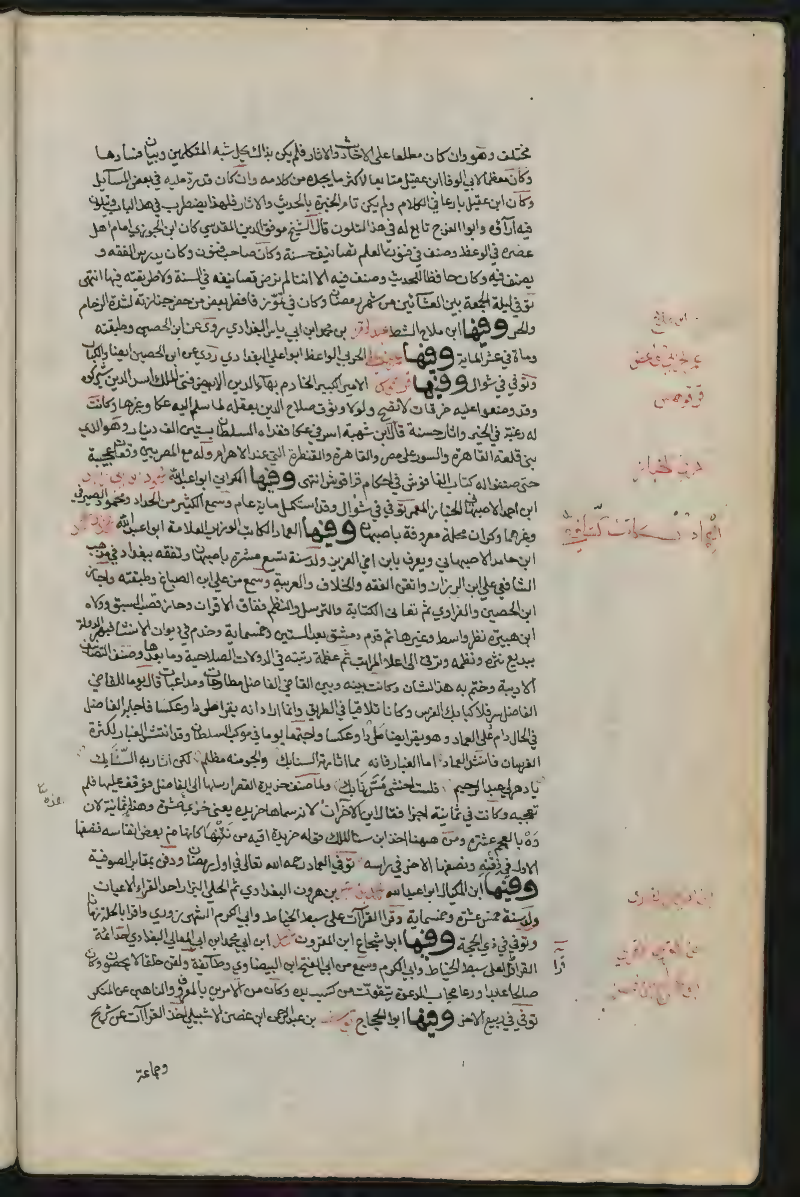 مختلف وهو وان كان مطلعا على الاحاديث والاثار فلم يكن بذاك يحل شبه المتكلمين وبيان فسادها
وكان معظما لابي الوفا ابن عقيل متابعا لاكثر ما يجده من كلامه وان كان قد رد عليه في بعض المسايل
وكان ابن عقيل بارعا في الكلام ولم يكن تام الخبرة بالحديث والاثار فلهذا يضطرب في هذا الباب وتتلون
فيه آراؤه وابو الفرج تابع له في هذا التلون قال الشيخ موفق الدين المقدسي كان ابن الجوزي امام اهل
عصره في الوعظ وصنف في فنون العلم تصانيف حسنة وكان صاحب فنون وكان يدرس الفقه و
يصنف فيه وكان حافظا للحديث وصنف فيه الا اننا لم نرض تصانيفه في السنة ولا طريقته فيها انتهى
توفي ليلة الجمعة بين العشائين من شهر رمضان وكان في تموز فافطر بعض من حضر جنازته لشدة الزحام
والحر وفيها ابن ملاح الشط عبد الرحمن بن محمد ابن ابي ياسر البغدادي روى عن ابن الحصين وطبقته
ومات في عشر الماية وفيها الحربي الواعظ ابو علي البغدادي روى عن ابن الحصين ايضا والكبار
وتوفي في شوال وفيها قراقوش الامير الكبير الخادم بهاء الدين الابيض فتى الملك اسد الدين شيركوه
وقد وضعوا عليه خرافات لا تصح ولولا وثوق صلاح الدين بعقله لما سلم اليه عكا وغيرها وكانت
له رغبة في الخير واثار حسنة قال ابن شهبة اسر في عكا ففداه السلطان بستين الف دينار وهو الذي
بنى قلعة القاهرة والسور على مصر والقاهرة والقنطرة التي عند الاهرام وله مع المصريين وقعات عجيبة
حتى صنفوا له كتاب الفاشوش في احكام قراقوش انتهى وفيها الكراني ابو عبد الله محمد بن ابي زيد
ابن احمد الاصبهاني الخباز المعمر توفي في شوال وقد استكمل ماية عام وسمع الكثير من الحداد ومحمود الصيرفي
وغيرهما وكران محلة معروفة باصبهان وفيها العماد الكاتب الوزير العلامة ابو عبد الله محمد بن محمد
ابن حامد الاصبهاني ويعرف بابن اخي العزيز ولد سنة تسع عشرة باصبهان وتفقه ببغداد في مذهب
الشافعي على ابن الرزاز واتقن الفقه والخلاف والعربية وسمع من علي ابن الصباغ وطبقته واجاز له
ابن الحصين والفراوي ثم تعانى الكتابة والترسل والنظم ففاق الاقران وحاز قصب السبق وولاه
ابن هبيرة نظر واسط وغيرها ثم قدم دمشق بعد الستين وخمسماية وخدم في ديوان الانشا فبهر الدولة
ببديع نثره ونظمه وترقى الى اعلا المراتب ثم عظمت رتبته في الدولات الصلاحية وما بعدها وصنف التصانيف
الادبية وختم به هذا الشان وكانت بينه وبين القاضي الفاضل مطارحات ومداعبات قال يوما للقاضي
الفاضل سر فلا كبا بك الفرس وكانا تلاقيا في الطريق وانما اراد انه يقرا طردا وعكسا فاجابه الفاضل
في الحال دام علا العماد وهو يقرا ايضا طردا وعكسا واجتمعا يوما في موكب السلطان وقد انتشر الغبار لكثرة
الفرسان فانشد العماد اما الغبار فانه مما اثارته السنابك والجو منه مظلم لكن انار به السنا بك
يا دهر لي عبد الرحيم فلست اخشى مس نابك ولما صنف خريدة القصر ارسلها الى الفاضل فوقف عليها فلم
تعجبه وكانت في ثمانية اجزا فقال اين الاخران لانه سماها خريدة يعني خرى عشرة وهذه ثمانية لان
ده بالعجم عشرة ومن ههنا اخذ ابن سنا الملك قوله خريدة افيه من نتنها كانها من بعض انفاسه فنصفها
الاول في ذقنه ونصفها الاخر في راسه توفي العماد رحمه الله تعالى في اول رمضان ودفن بمقابر الصوفية
وفيها ابن الكيال ابو عبد الله محمد بن محمد بن هرون البغدادي ثم الحلي البزاز احد القراء الاعيان
ولد سنة خمس عشرة وخمسماية وقرا القراآت على سبط الخياط وابي الكرم الشهرزوري واقرا بالحلة زمانا
وتوفي في ذي الحجة وفيها ابو شجاع ابن المقرون محمد ابن ابي محمد ابن ابي المعالي البغدادي احد ائمة
القرا قرا على سبط الخياط وابي الكرم وسمع من ابي الفتح ابن البيضاوي وطائفة ولقن خلقا لا يحصون وكان
صالحا عابدا ورعا مجاب الدعوة يتقوت من كسب يده وكان من الامرين بالمعروف والناهين عن المنكر
توفي في ربيع الاخر وفيها ابو الحجاج يوسف بن عبد الرحمن ابن غصن الاشبيلي اخذ القراآت عن شريح
وجماعة